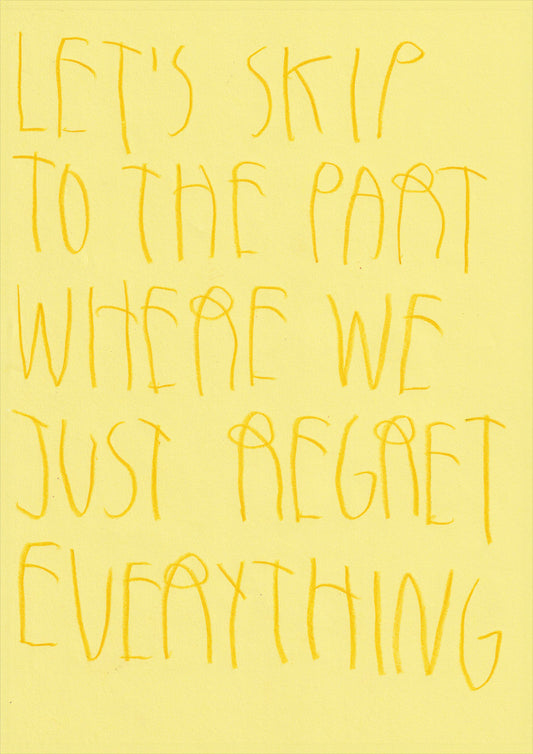 LET'S SKIP
TO THE PART
WHERE WE
JUST REGRET
EVERYTHING